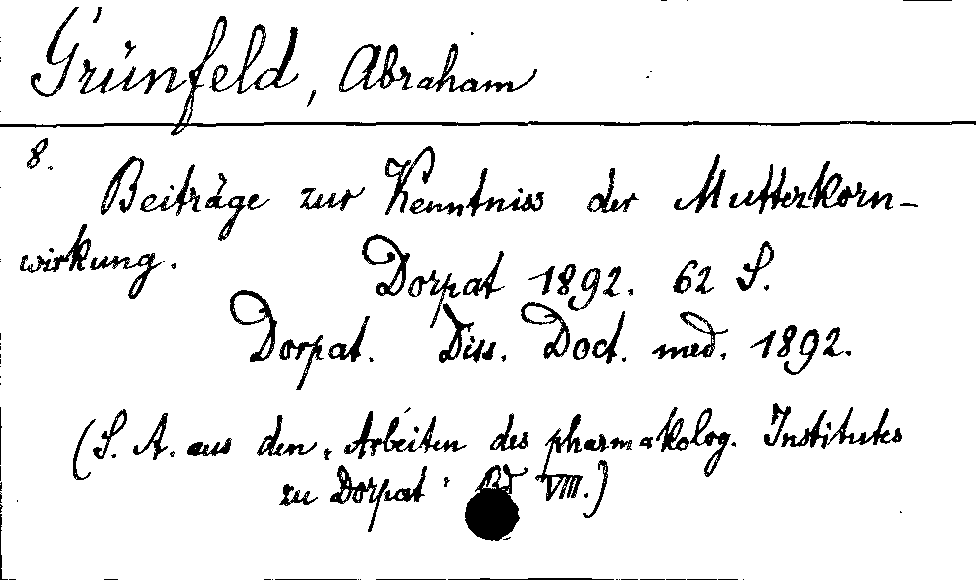 Grünfeld, Abraham
8.
Beiträge zur Kenntniss der Mutterkorn-
wirkung.
Dorpat 1892. 62 S.
Dorpat. Diss. Doct. med. 1892.
(S. A. aus den „Arbeiten des pharmakolog. Institutes
zu Dorpat" Bd VIII.)